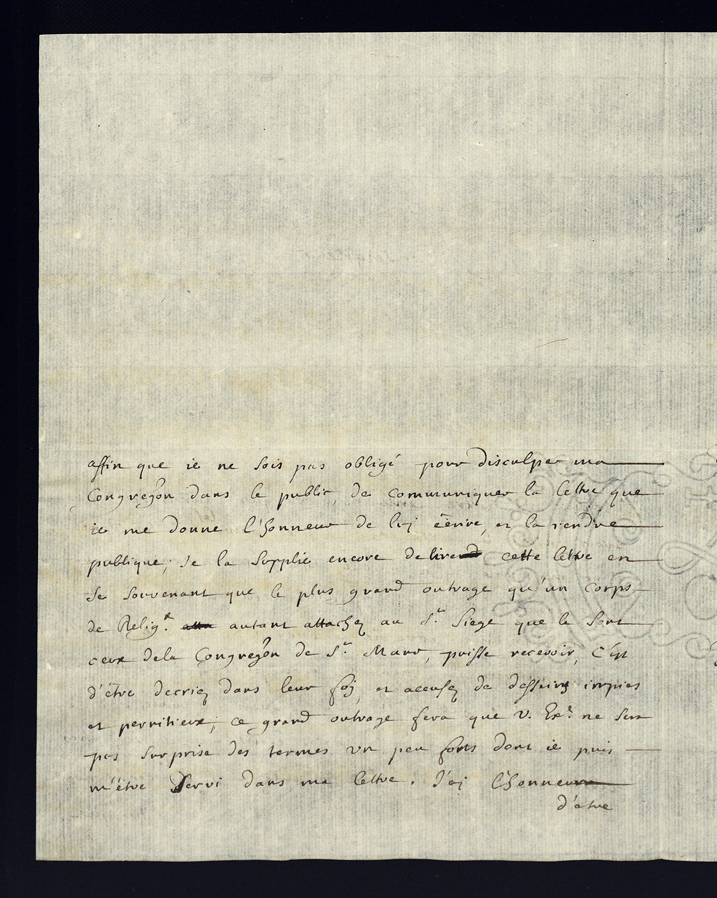 affin que ie ne sois pas obligé pour disculper ma
Congregõn dans le public de communiquer la lettre que
ie me donne l'honneur de luj écrire, et la rendre
publique; Je la supplie encore de lire cette lettre en
se souvenant que le plus grand outrage qu'un corps
de Relig.x autant attachez au St. Siege que le sont
ceux de la Congregõn de St. Maur, puisse recevoir, C'est
d'être decriez dans leur foj, et accusez de desseins impies
et pernitieux, ce grand outrage fera que V. Exe. ne sera
pas surprise des termes un peu forts dont ie puis
m'être servi dans ma lettre. J'aj l'honneur
d'être